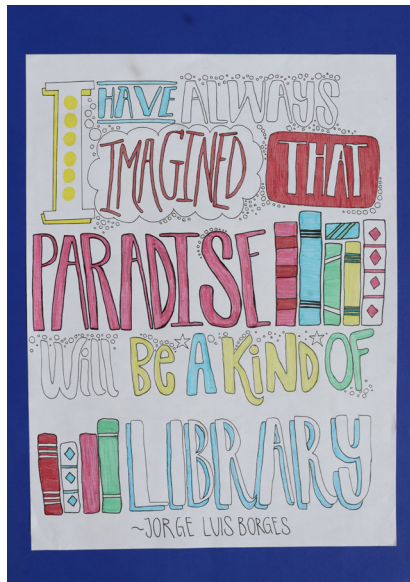 I HAVE ALWAYS
IMAGINED THAT
PARADISE
Will BE A KiND OF
LIBRARY
~JORGE LUIS BORGES